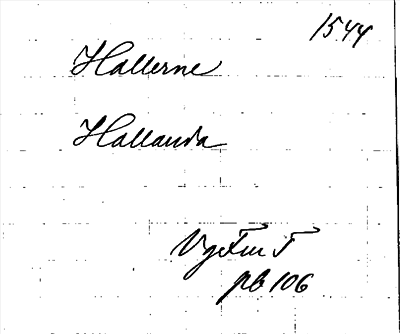 1544
Hallerne
Hallanda
Vg Fur 5
pb 106